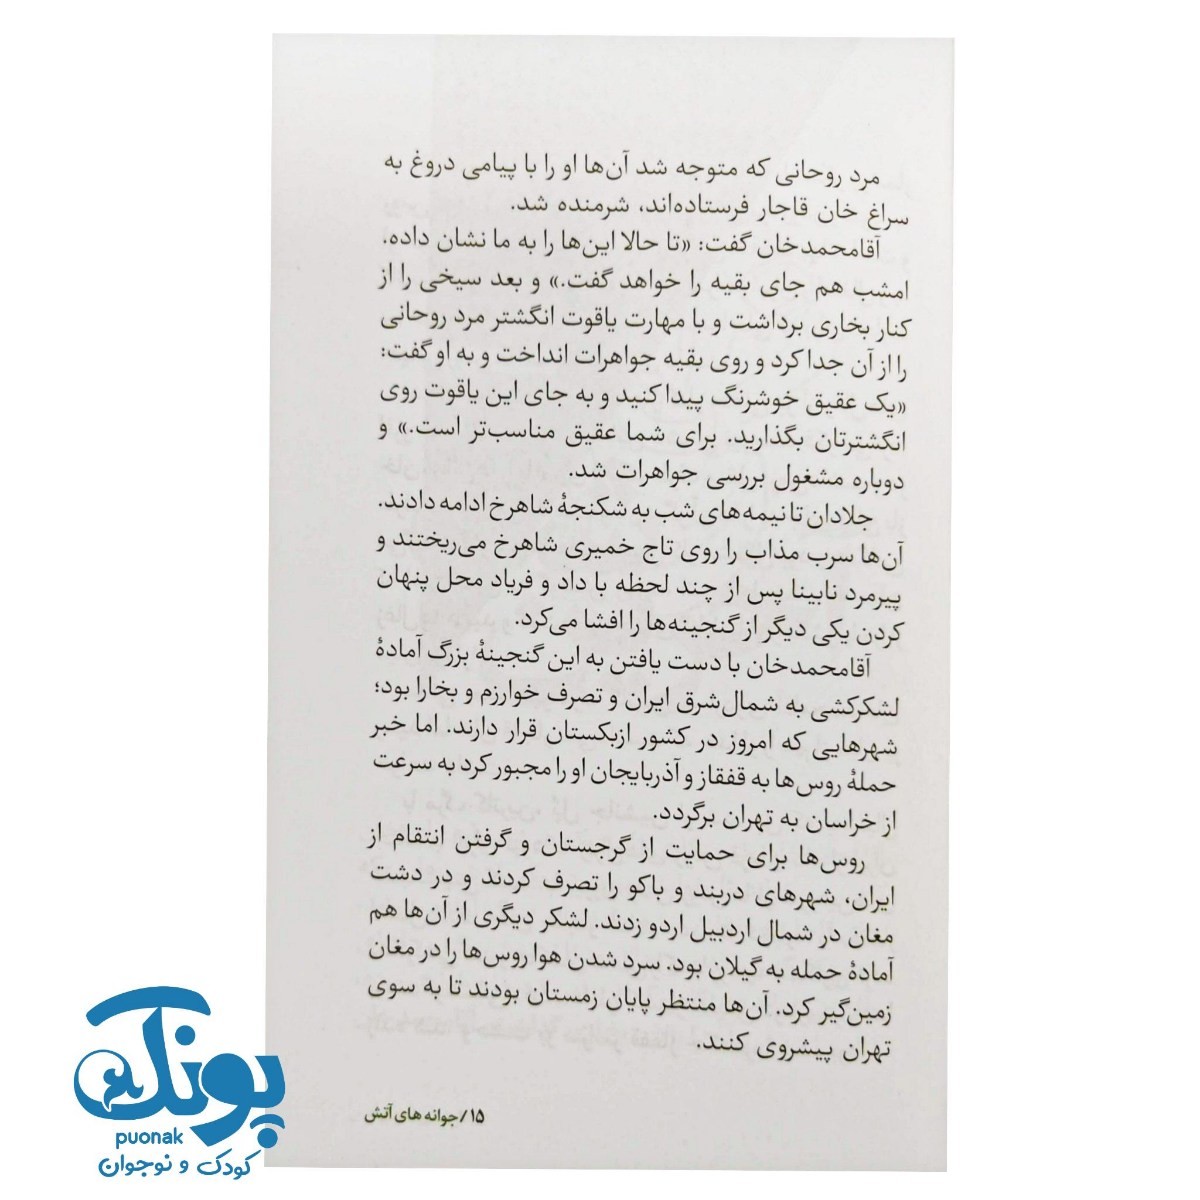 مرد روحانی که متوجه شد آن‌ها او را با پیامی دروغ به
سراغ خان قاجار فرستاده‌اند، شرمنده شد.
آقامحمدخان گفت: «تا حالا این‌ها را به ما نشان داده.
امشب هم جای بقیه را خواهد گفت.» و بعد سیخی را از
کنار بخاری برداشت و با مهارت یاقوت انگشتر مرد روحانی
را از آن جدا کرد و روی بقیه جواهرات انداخت و به او گفت:
«یک عقیق خوشرنگ پیدا کنید و به جای این یاقوت روی
انگشترتان بگذارید. برای شما عقیق مناسب‌تر است.» و
دوباره مشغول بررسی جواهرات شد.
جلادان تا نیمه‌های شب به شکنجهٔ شاهرخ ادامه دادند.
آن‌ها سرب مذاب را روی تاج خمیری شاهرخ می‌ریختند و
پیرمرد نابینا پس از چند لحظه با داد و فریاد محل پنهان
کردن یکی دیگر از گنجینه‌ها را افشا می‌کرد.
آقامحمدخان با دست یافتن به این گنجینهٔ بزرگ آمادهٔ
لشکرکشی به شمال‌شرق ایران و تصرف خوارزم و بخارا بود؛
شهرهایی که امروز در کشور ازبکستان قرار دارند. اما خبر
حملهٔ روس‌ها به قفقاز و آذربایجان او را مجبور کرد به سرعت
از خراسان به تهران برگردد.
روس‌ها برای حمایت از گرجستان و گرفتن انتقام از
ایران، شهرهای دربند و باکو را تصرف کردند و در دشت
مغان در شمال اردبیل اردو زدند. لشکر دیگری از آن‌ها هم
آمادهٔ حمله به گیلان بود. سرد شدن هوا روس‌ها را در مغان
زمین‌گیر کرد. آن‌ها منتظر پایان زمستان بودند تا به سوی
تهران پیشروی کنند.
۱۵/ جوانه های آتش
پونک
puonak
کودک و نوجوان